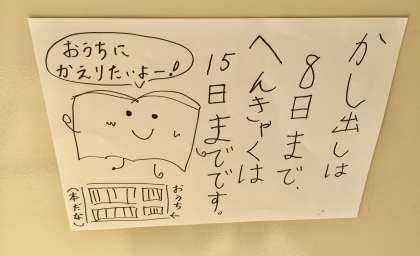 かし出しは
8日まで、
へんきゃくは
15日までです。
おうちに
かえりたいよー!
おうち←
(本だな)